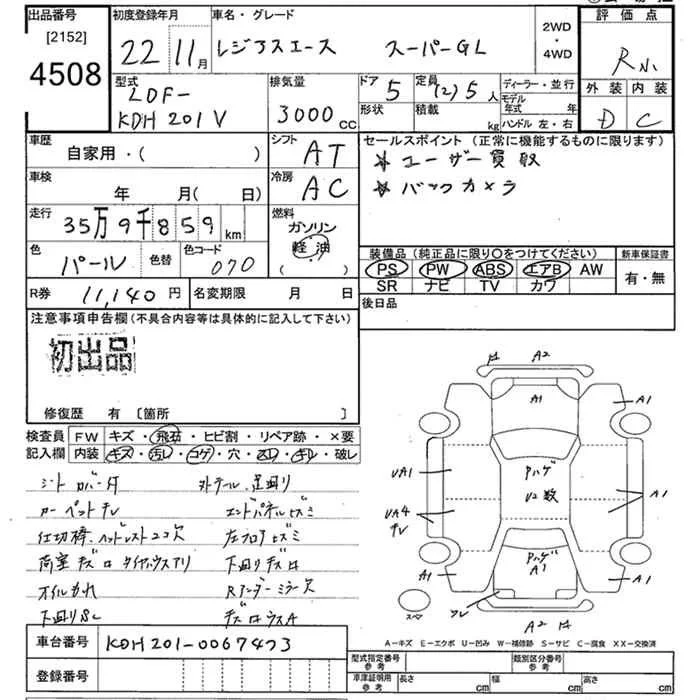 出品番号 初度登録年月 車名・グレード 2WD・4WD 評価点
[2152]
4508
22 11月
レジアスエース スーパーGL
外装 内装
D C
型式 排気量 ドア 定員 ディーラー・並行
LDF-
KDH201V
3000cc
5 (2)5人
形状 積載 kg
モデル年式 年
ハンドル 左・右
車歴 シフト セールスポイント(正常に機能するものに限ります)
自家用・( ) AT
★ユーザー買取
★バックカメラ
車検 冷房
年 月(日) AC
走行 燃料
35万9千859km
ガソリン
軽油
( )
色 色替 色コード
パール 070
装備品(純正品に限り○をつけてください) 新車保証書
PS PW ABS エアB AW 有・無
SR ナビ TV カワ
R券 11,140円 名変期限 月 日
後日品
注意事項申告欄(不具合内容等は具体的に記入して下さい)
初出品
修復歴 有 [箇所 ]
検査員記入欄
FW キズ・飛石・ヒビ割・リペア跡・×要
内装 キズ・汚レ・コゲ・穴・スレ・キレ・破レ
シートカバー付
カーペットチレ エンドパネルヒズミ
左フロアヒズミ
下廻りキズロ
オイルもれ
下廻りSC
A2
A1
A1
UA1
Pハゲ
U2数
A1
UA4
チレ
Pハゲ
A1
A1
スペア
A2
A-キズ E-エクボ U-凹み W-補修跡 S-サビ C-腐食 XX-交換済
車台番号 KDH201-0067473
登録番号
型式指定番号 参考 類別区分番号 参考
車庫証明用 参考 長さ cm 幅 cm 高さ cm